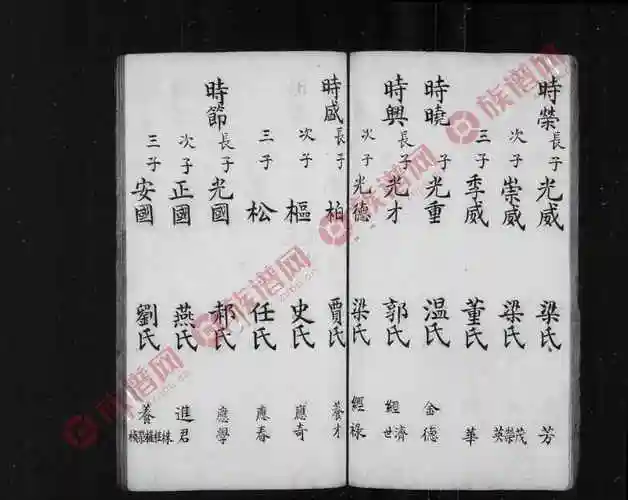 時榮 長子 光威 梁氏 芳
次子 崇威 梁氏 茂榮英
三子 季威 董氏 華
時曉 長子 光重 温氏 金德
時興 長子 光才 郭氏 經濟世
次子 光德 梁氏 經祿
時盛 長子 柏 賈氏 養才
次子 樞 史氏 應奇
三子 松 任氏 應春
時節 長子 光國 郝氏 應學
次子 正國 燕氏 進君
三子 安國 劉氏 養
族谱网
族谱网
族谱网
族谱网